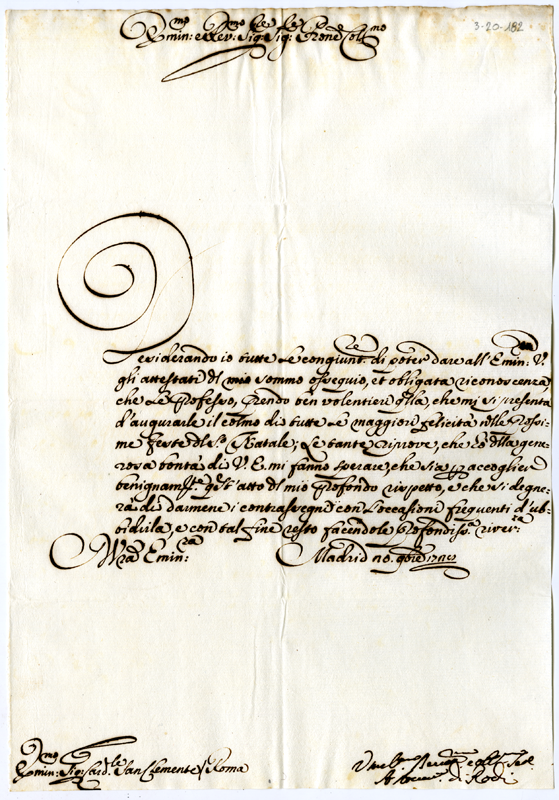 3-20-182
Emin:mo e Rev:mo Sig:re Sig:r Prone Coll:mo
Desiderando io tutte le congiunt:re di poter dare all'Emin:za V.
gli attestati del mio sommo ossequio, et obligata riconoscenza
che le professo, prendo ben volentieri q'lla, che mi si presenta
d'augurarle il colmo di tutte le maggiori felicità nelle prossi-
me feste del S.o Natale; Le tante riprove, che hò della gene-
rosa bontà di V. E. mi fanno sperare, che sia p accogliere
benignam.te q'sto atto del mio profondo rispetto, e che si degne-
rà di darmene i contrassegni con l'occasioni frequenti d'ub-
bidirla, e con tal fine resto facendole profondiss.a river:za
Vra Emin:za Madrid
Emin:mo Sig:r Card:le San Clemente Roma
di Rodi